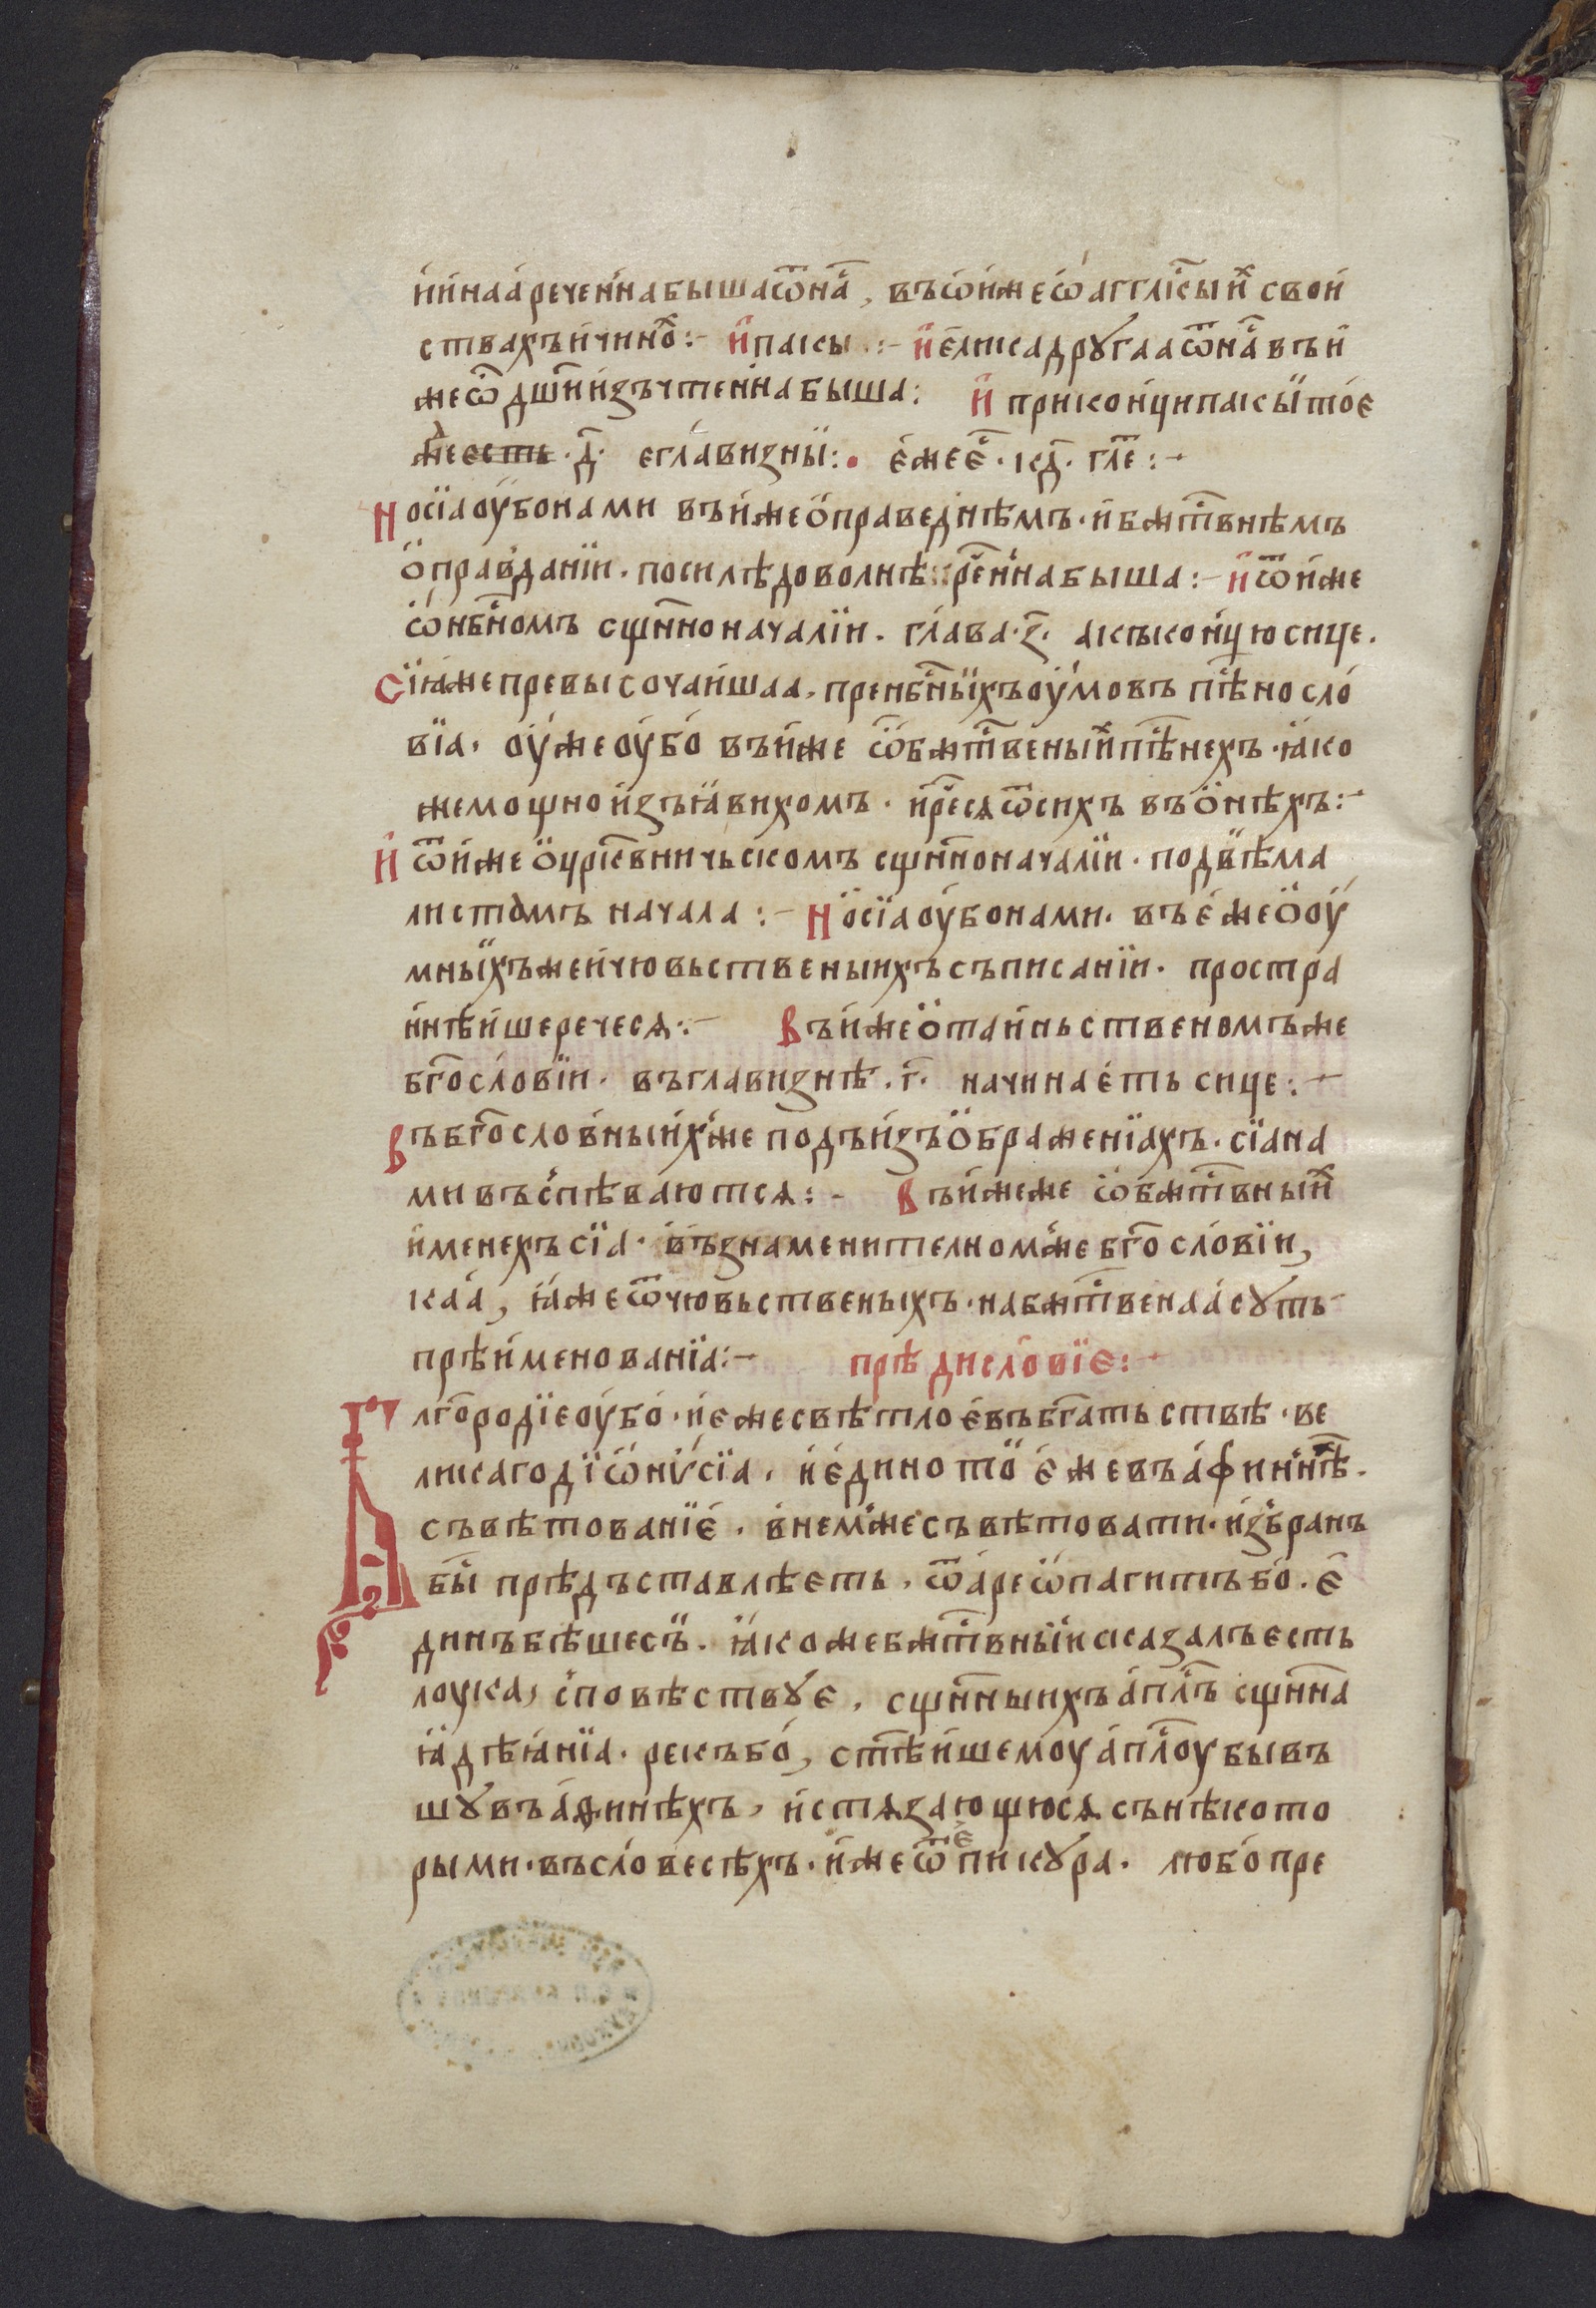 и҆и҆наа҆ реченна быша ѿ на̑с, въ ѡ҆ иже ѡ҆ аггл҃кыи҆х свои
ствахъ и҆ чинѡ̑х :- и҆ пакы :- и҆ е҆лика дрꙋгаа ѿ на̑с въ и
же ѡ҆ дш҃и и҆зъчтенна быша : и҆ при конци пакы тоѐ
же есть · д҃ · е главизны :· е҆же е҆с · кд҃ · гл҃е :-
Но сїа оу҆бо нами въ и҆же ѡ҆ праведнѣмъ · и҆ бж҃твнѣмъ
ѡ҆правданїи · по силѣ доволнѣ рен҃на быша :- и҆ ѿ и҆же
ѡ҆ нбн҃омъ сщн҃ноначалїи · глава · з҃ · акы концю сице ·
Сїꙗ҆же превысочаишаа, пренбн҃ыхъ оу҆мовъ пѣносло
вїа · оу҆же оу҆бо въ и҆же ѡ҆ бж҃твеныи҆х пѣнехъ · ꙗ҆ко
же мощно и҆зъꙗ҆вихомъ · и҆ рече̑сѧ ѿ сихъ въ ѻ҆нѣхъ :-
И҆ ѿ и҆же ѡ҆ цр҃квничьскомъ сщн҃ноначалїи · по двѣма
листомъ начала :- Но сїа оу҆бо нами · въ е҆же ѡ҆ оу҆
мныхъ же и҆ чювьственыихъ съписанїи · простра
ннѣи҆ше речесѧ :- Въ и҆же ѡ҆ таи҆ньственомъ же
бг҃ословїи · въ главизнѣ · г҃ · начинае҆ть сице :-
Въ бг҃ословныи҆х же подъи҆зъѡ҆браженїахъ · сїа на
ми въспѣваютсѧ :- Въ и҆же же ѡ҆ бж҃твныи҆х
и҆менехъ сїа · въ знаменителном же бг҃ословїи,
каа҆, ꙗ҆же ѿ чювьственыхъ · на бж҃твенаа҆ сꙋть
прѣи҆менованїа :- прѣдисловїе :-
Блг҃ородїе оу҆бо · и҆ е҆же свѣтлое҆ въ бг҃атьствѣ · ве
ликаго дїѡ҆нѵ҆сїа · и҆ е҆дино то е҆же въ а҆финнѣ̑х ·
съвѣтованїе҆ · в нем же съвѣтовати · и҆збранъ
бы̑с прѣдъставлѣеть · ѿ а҆реѡ҆пагитъ бо · е҆
динъ бѣше сы · ꙗ҆коже бж҃твныи сказалъ есть
лоука, споⷡ҇ѣствꙋе, сщн҃ныихъ а҆пл҃ъ сщн҃на
ꙗ҆ дѣꙗ҆нїа · рекъ бо, ст҃ѣи҆шемоу а҆пл҃оу бывъ
шꙋ въ а҆ѳинѣхъ, и҆стѧзающюсѧ съ нѣкото
рыми · въ словесѣхъ · и҆же ѿ е҆пикꙋра · любопре